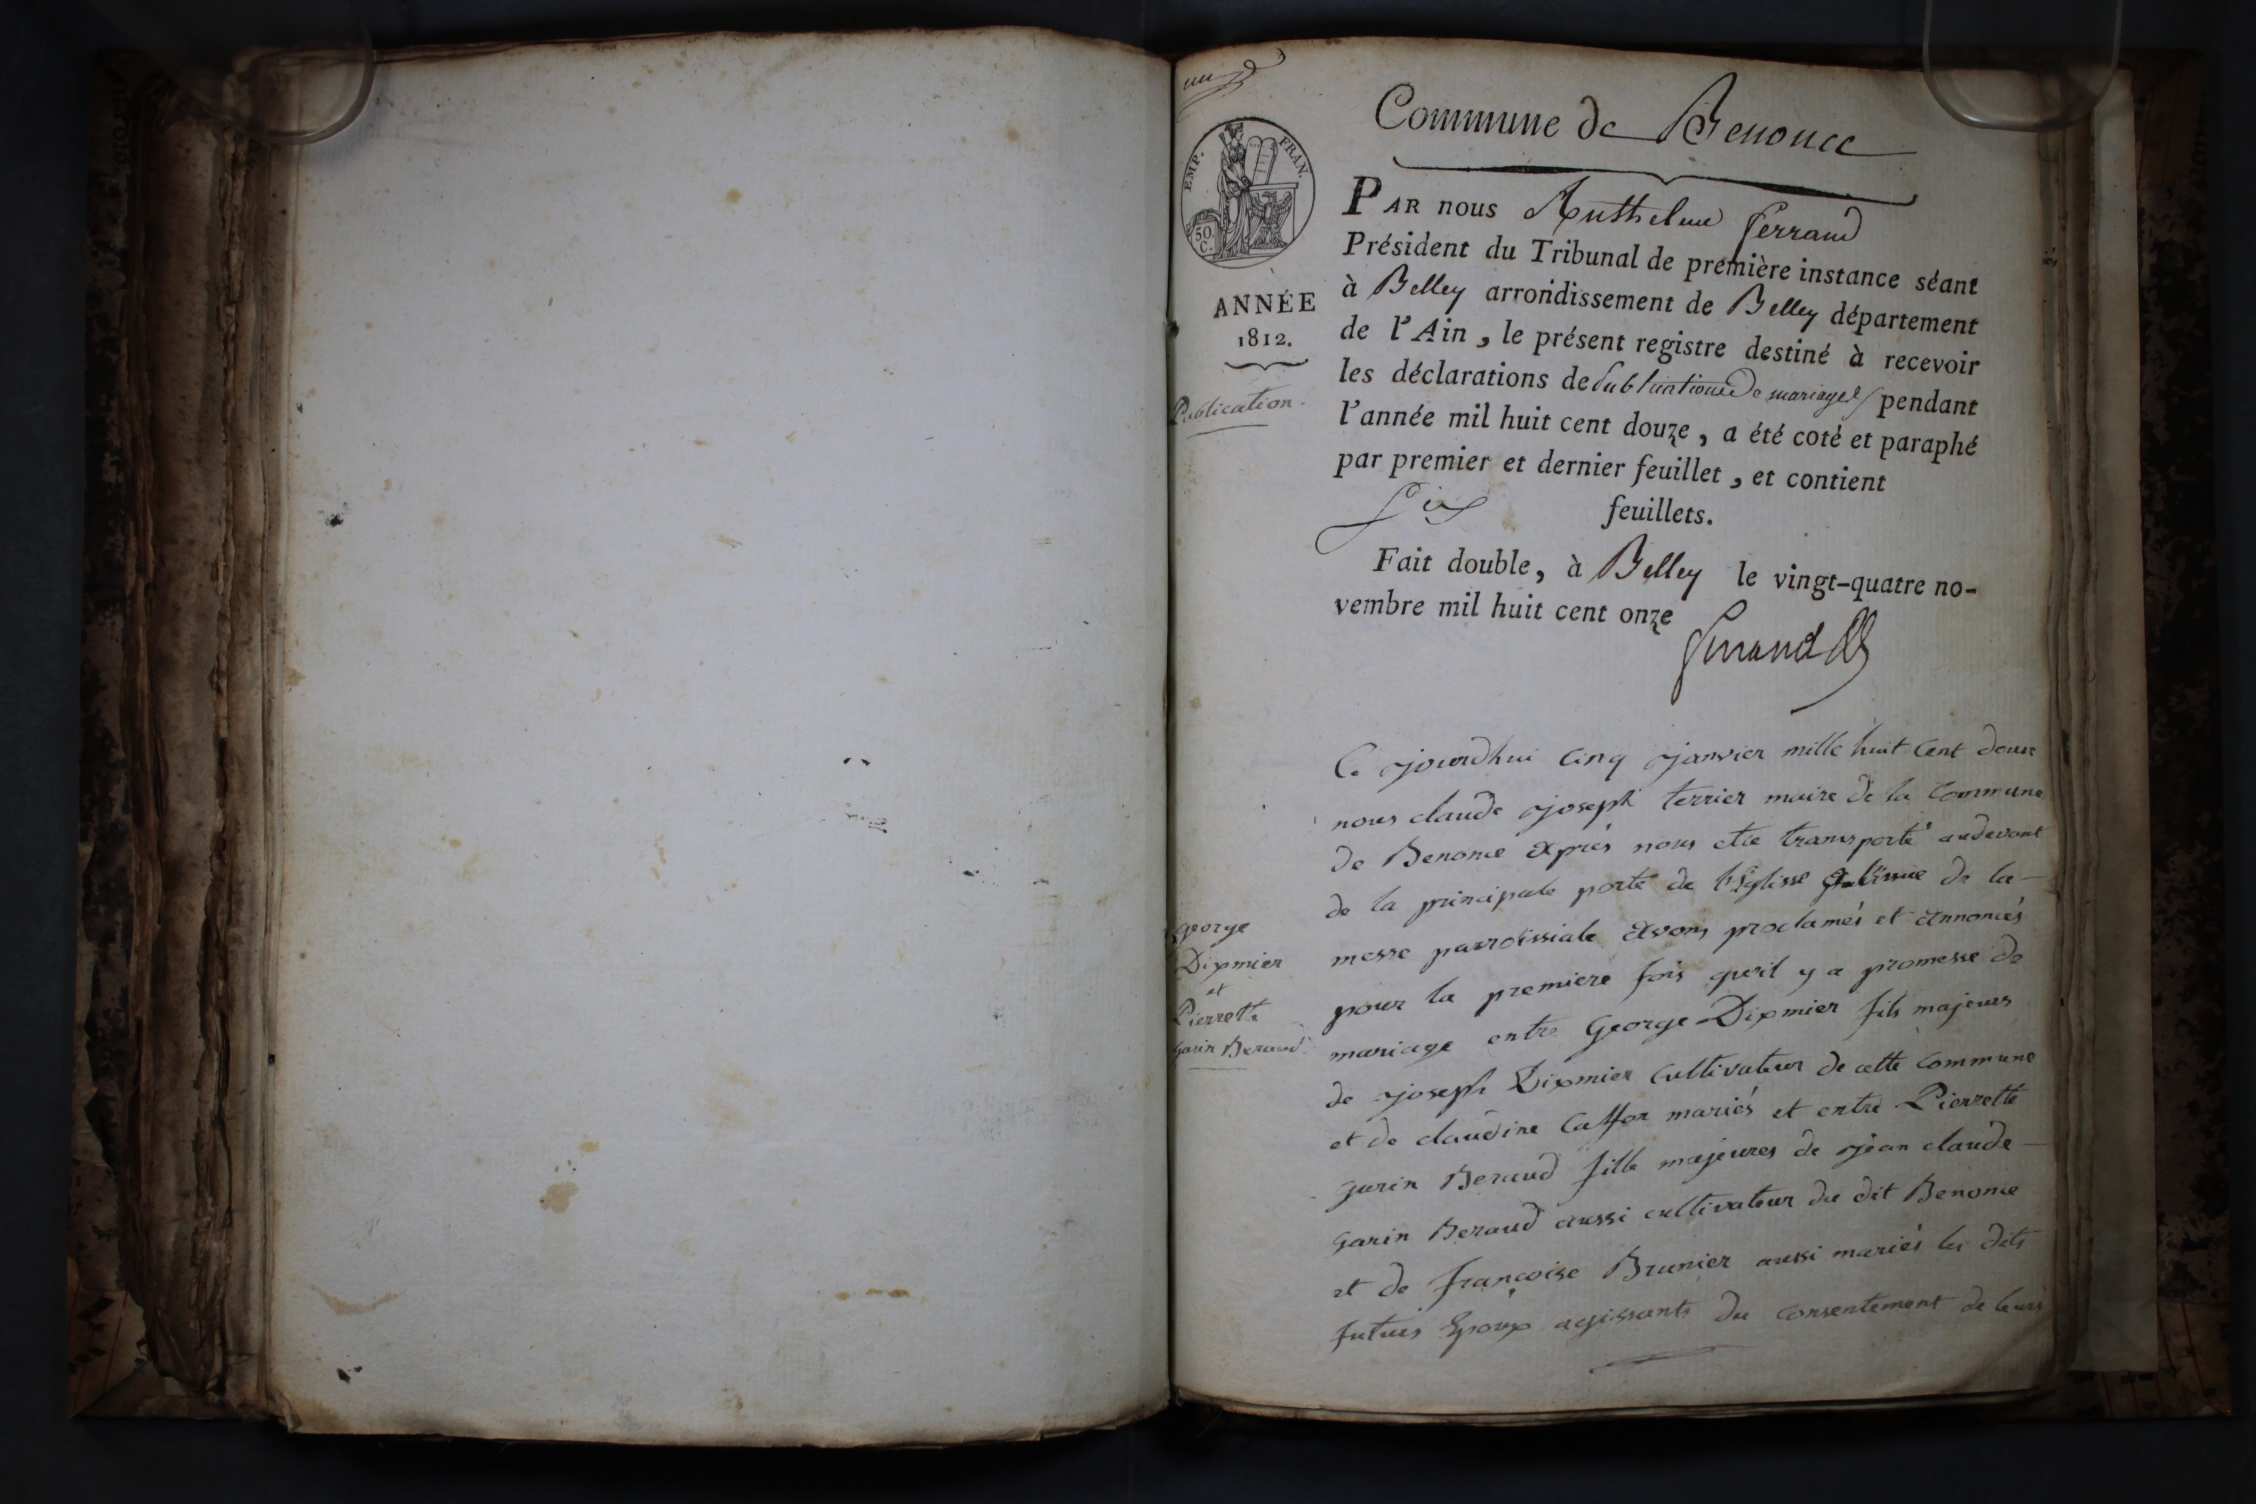 Commune de Benonce
EMP. FRAN.
50.
C.
PAR nous Anthelme Ferrand
Président du Tribunal de première instance séant
à Belley arrondissement de Belley département
ANNÉE
1812.
de l'Ain, le présent registre destiné à recevoir
les déclarations de publications de mariages pendant
Publication.
l'année mil huit cent douze, a été coté et paraphé
par premier et dernier feuillet, et contient
six feuillets.
Fait double, à Belley le vingt-quatre no-
vembre mil huit cent onze
Ferrand
Ce jourdhui cinq janvier mille huit cent douze
nous claude joseph terrier maire de la commune
de Benonce après nous etre transporté audevant
de la principale porte de l'Eglisse a l'issue de la
messe parroissiale avons proclamés et annoncés
pour la premiere fois qu'il y a promesse de
mariage entre George Dixmier fils majeurs
de joseph Dixmier cultivateur de cette commune
et de claudine mariés et entre Pierrette
garin Beraud fille majeures de jean claude
garin Beraud aussi cultivateur du dit Benonce
et de françoise Brunier aussi mariés les dits
futurs Epoux agissants du consentement de leurs
George
Dixmier
et
Pierrette
garin Beraud